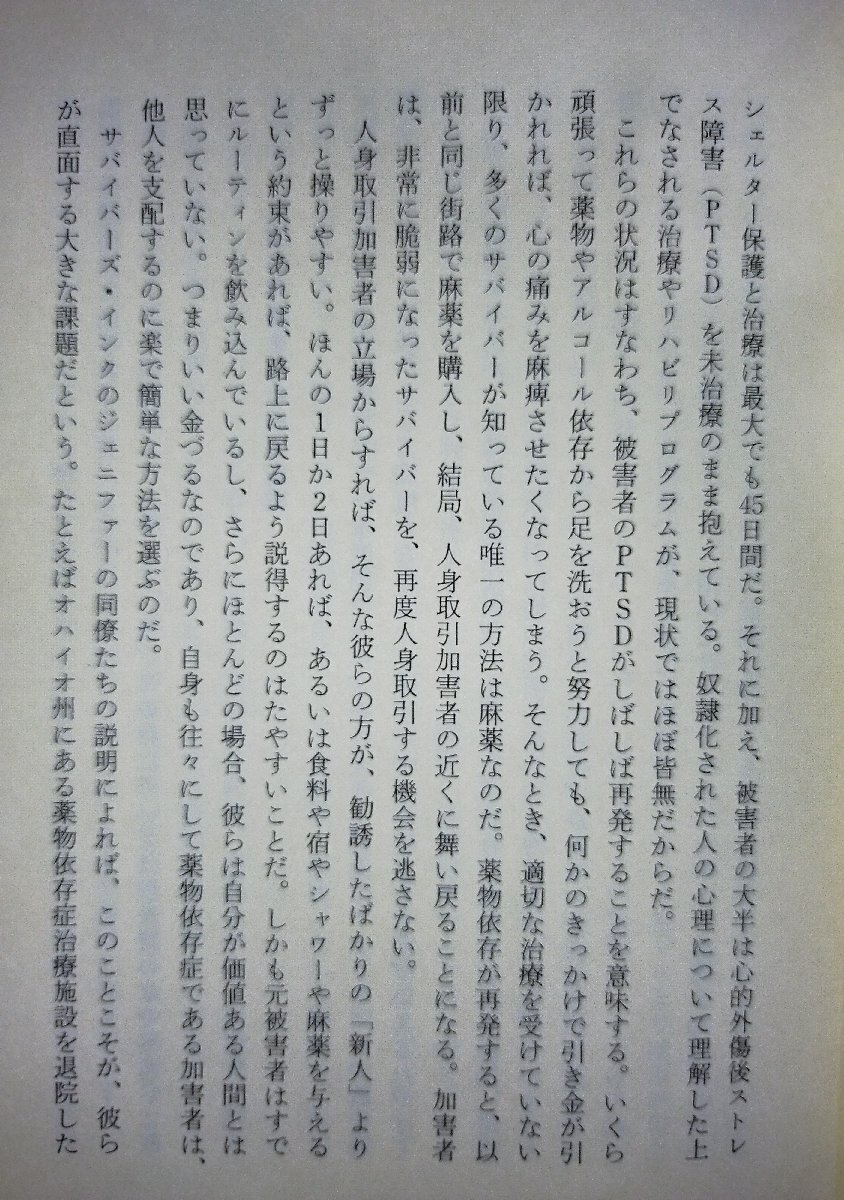 シェルター保護と治療は最大でも45日間だ。それに加え、被害者の大半は心的外傷後ストレ
ス障害（PTSD）を未治療のまま抱えている。奴隷化された人の心理について理解した上
でなされる治療やリハビリプログラムが、現状ではほぼ皆無だからだ。
これらの状況はすなわち、被害者のPTSDがしばしば再発することを意味する。いくら
頑張って薬物やアルコール依存から足を洗おうと努力しても、何かのきっかけで引き金が引
かれれば、心の痛みを麻痺させたくなってしまう。そんなとき、適切な治療を受けていない
限り、多くのサバイバーが知っている唯一の方法は麻薬なのだ。薬物依存が再発すると、以
前と同じ街路で麻薬を購入し、結局、人身取引加害者の近くに舞い戻ることになる。加害者
は、非常に脆弱になったサバイバーを、再度人身取引する機会を逃さない。
人身取引加害者の立場からすれば、そんな彼らの方が、勧誘したばかりの「新人」より
ずっと操りやすい。ほんの1日か2日あれば、あるいは食料や宿やシャワーや麻薬を与える
という約束があれば、路上に戻るよう説得するのはたやすいことだ。しかも元被害者はすで
にルーティンを飲み込んでいるし、さらにほとんどの場合、彼らは自分が価値ある人間とは
思っていない。つまりいい金づるなのであり、自身も往々にして薬物依存症である加害者は、
他人を支配するのに楽で簡単な方法を選ぶのだ。
サバイバーズ・インクのジェニファーの同僚たちの説明によれば、このことこそが、彼ら
が直面する大きな課題だという。たとえばオハイオ州にある薬物依存症治療施設を退院した